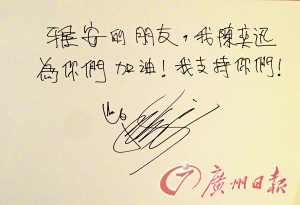 雅安的朋友，我陳奕迅
為你們加油！我支持你們！
廣州日报